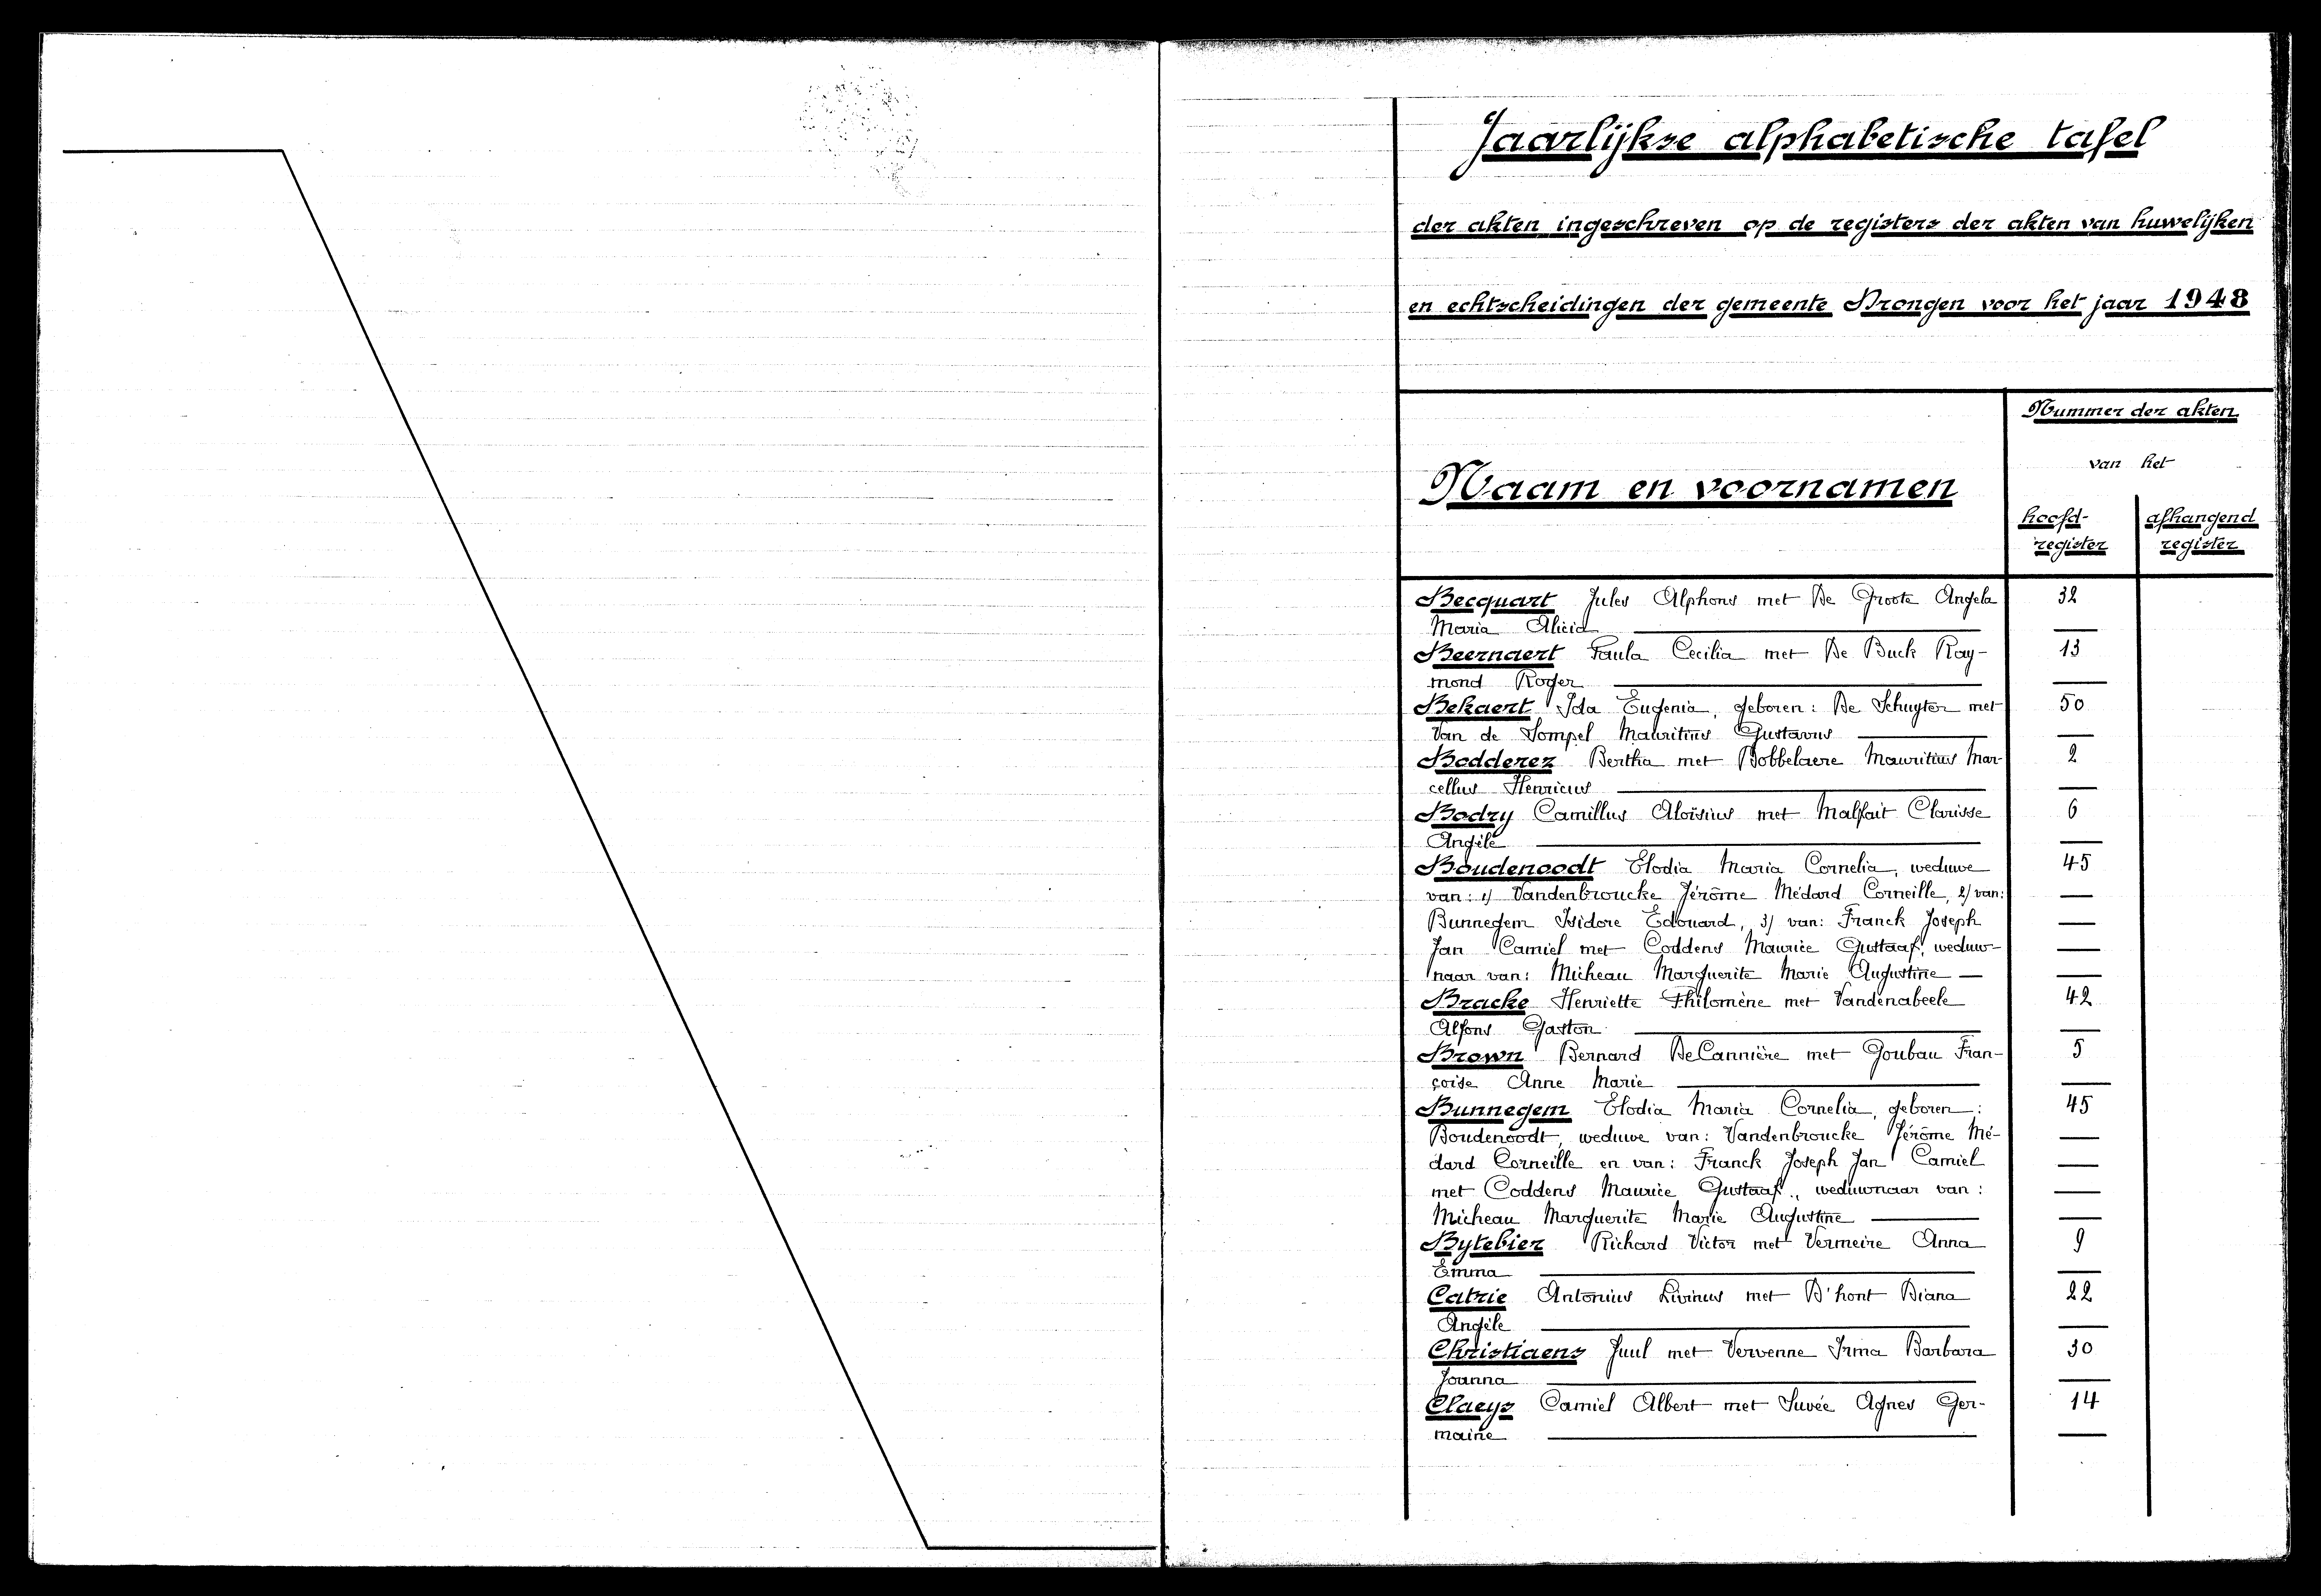 Jaarlijkse alphabetische tafel
der akten ingeschreven op de registers der akten van huwelijken
en echtscheidingen der gemeente Drongen voor het jaar 1948
Nummer der akten
van het
Naam en voornamen
hoofd- afhangend
register register
Becquart Jules Alphons met De Groote Angela 32
Maria Alicia —
Beernaert Paula Cecilia met De Buck Ray- 13
mond Roger —
Bekaert Ida Eugenia, geboren: De Schuyter met 50
Van de Sompel Mauritius Gustavus —
Bodderez Bertha met Bobbelaere Mauritius Mar- 2
cellus Henricus —
Bodry Camillus Aloïsius met Malfait Clarisse 6
Angèle —
Boudenoodt Elodia Maria Cornelia, weduwe 45
van: 1/ Vandenbroucke Jérôme Médard Corneille, 2/ van: —
Bunnegem Isidore Edouard, 3/ van: Franck Joseph —
Jan Camiel met Coddens Maurice Gustaaf, weduw- —
naar van: Micheau Marguerite Marie Augustine — —
Bracke Henriette Philomène met Vandenabeele 42
Alfons Gaston —
Brown Bernard DeCannière met Goubau Fran- 5
çoise Anne Marie —
Bunnegem Elodia Maria Cornelia, geboren: 45
Boudenoodt, weduwe van: Vandenbroucke Jérôme Mé- —
dard Corneille en van: Franck Joseph Jan Camiel —
met Coddens Maurice Gustaaf., weduwnaar van: —
Micheau Marguerite Marie Augustine —
Bytebier Richard Victor met Vermeire Anna 9
Emma —
Catrie Antonius Livinus met D'hont Diana 22
Angèle —
Christiaens Juul met Vervenne Irma Barbara 30
Joanna —
Claeys Camiel Albert met Suvée Agnes Ger- 14
maine —